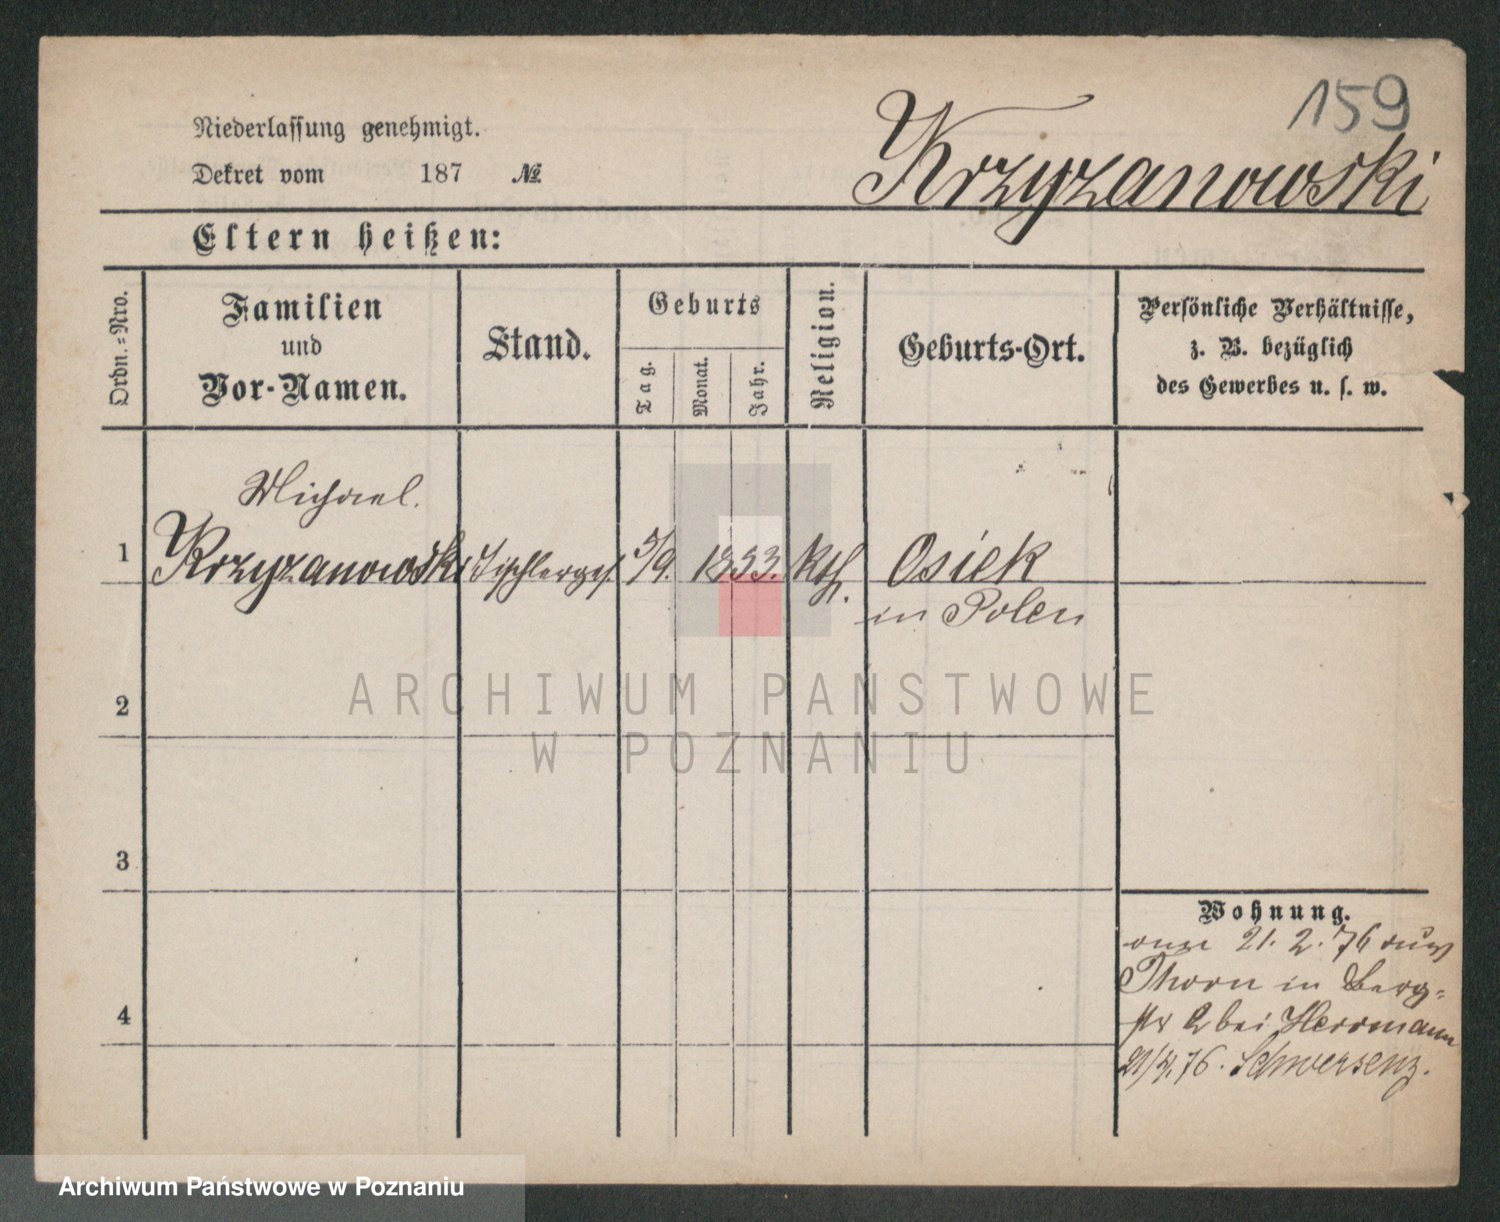 159
Niederlassung genehmigt.
Dekret vom 187 №
Krzyzanowski
Eltern heißen:
Ordn.=Nro.
Familien
und
Vor-Namen.
Stand.
Geburts
Tag.
Monat.
Jahr.
Religion.
Geburts-Ort.
Persönliche Verhältnisse,
z. B. bezüglich
des Gewerbes u. s. w.
Michael.
1 Krzyzanowski Tischlerges. 5/9. 1853. Kth. Osiek
in Polen
2
3
4
Wohnung.
21. 2. 76 aus
Thorn in Berg=
str 2 bei Herrmann
21/4.76. Schwersenz.
ARCHIWUM PAŃSTWOWE
W POZNANIU
Archiwum Państwowe w Poznaniu